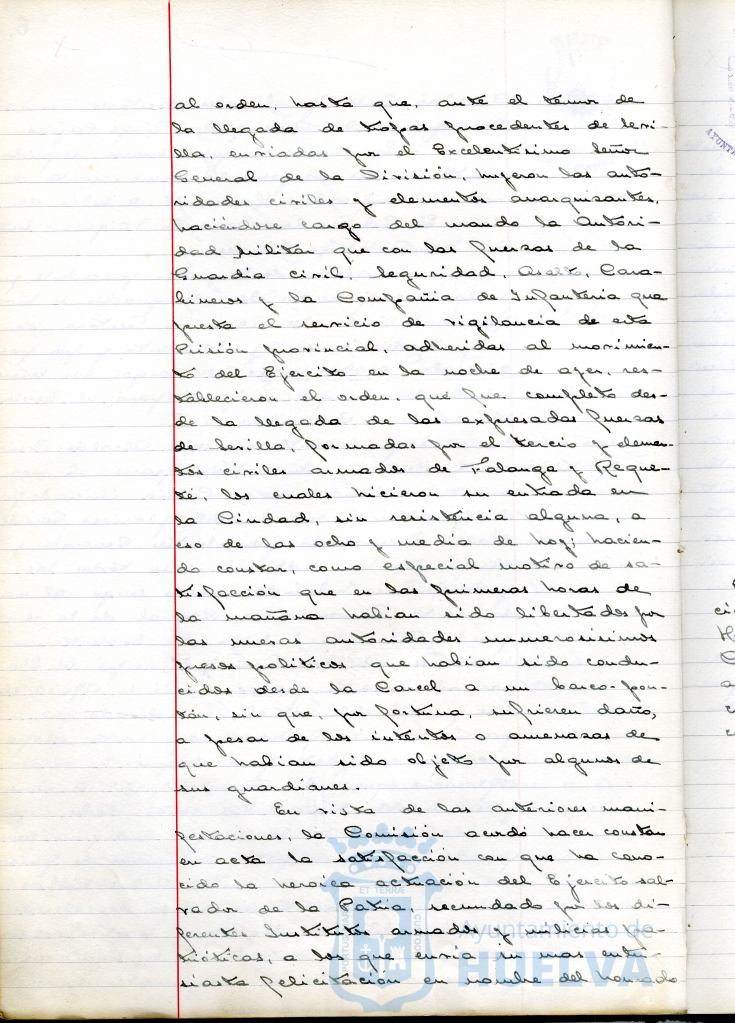 al orden, hasta que, ante el temor de
la llegada de tropas procedentes de Sevi-
lla, enviadas por el Excelentisimo Señor
General de la División, huyeron las auto-
ridades civiles y elementos anarquizantes,
haciéndose cargo del mando la Autori-
dad Militar que con las fuerzas de la
Guardia civil, Seguridad, Asalto, Cara-
bineros y la Compañia de Infanteria que
presta el servicio de vigilancia de esta
Prisión provincial, adheridas al movimien-
to del Ejercito en la noche de ayer, res-
tablecieron el orden, que fue completo des-
de la llegada de las expresadas fuerzas
de Sevilla, formadas por el Tercio y elemen-
tos civiles armados de Falange y Reque-
té, los cuales hicieron su entrada en
la Ciudad, sin resistencia alguna, a
eso de las ocho y media de hoy; hacien-
do constar, como especial motivo de sa-
tisfacción que en las primeras horas de
la mañana habian sido libertados por
las nuevas autoridades numerosisimos
presos politicos que habian sido condu-
cidos desde la Carcel a un barco-pon-
tón, sin que, por fortuna, sufrieren daño,
a pesar de los intentos o amenazas de
que habian sido objeto por algunos de
sus guardianes.
En vista de las anteriores mani-
festaciones, la Comisión acordó hacer constar
en acta la satisfacción con que ha cono-
cido la heroica actuación del Ejercito sal-
vador de la Patria, secundado por los di-
ferentes Institutos armados y milicias pa-
trióticas, a los que envia su mas entu-
siasta felicitación en nombre del honrado
Ayuntamiento de
HUELVA